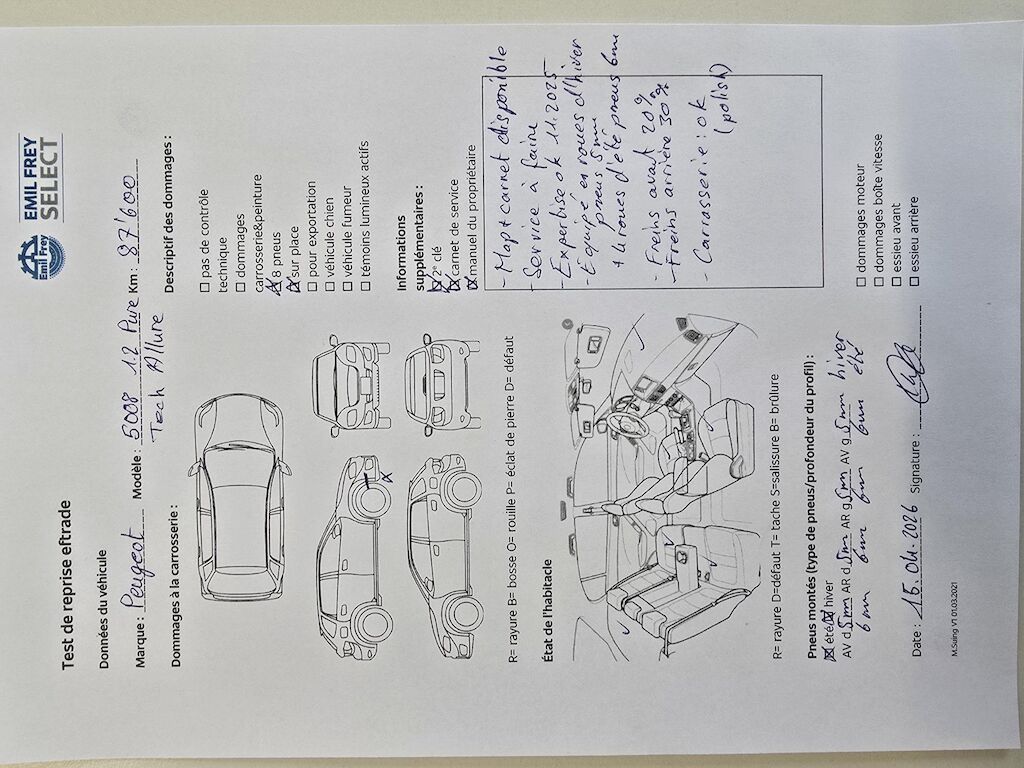 EMIL FREY
SELECT
Emil Frey
Test de reprise eftrade
Données du véhicule
Marque : Peugeot Modèle : 5008 1.2 Pure Km : 87'600
Tech Allure
Dommages à la carrosserie :
Descriptif des dommages :
☐ pas de contrôle
technique
☐ dommages
carrosserie&peinture
☒ 8 pneus
☒ sur place
☐ pour exportation
☐ véhicule chien
☐ véhicule fumeur
☐ témoins lumineux actifs
Informations
supplémentaires :
☒ 2ᵉ clé
☒ carnet de service
☒ manuel du propriétaire
R= rayure B= bosse O= rouille P= éclat de pierre D= défaut
État de l'habitacle
- Map + carnet disponible
- Service à faire
- Expertise ok 11.2025
- Equipé en roues d'hiver
pneus 5mm
+ 4 roues d'été pneus 6mm
- Freins avant 20%
- Freins arrière 30%
- Carrosserie : ok
(polish)
R= rayure D=défaut T= tache S=salissure B= brûlure
Pneus montés (type de pneus/profondeur du profil) :
☒ été ☒ hiver
AV d 5mm AR d 5mm AR g 5mm AV g 5mm hiver
6mm 6mm 6mm 6mm été
☐ dommages moteur
☐ dommages boîte vitesse
☐ essieu avant
☐ essieu arrière
Date : 15.04.2026 Signature :
M.Suing V1 01.03.2021